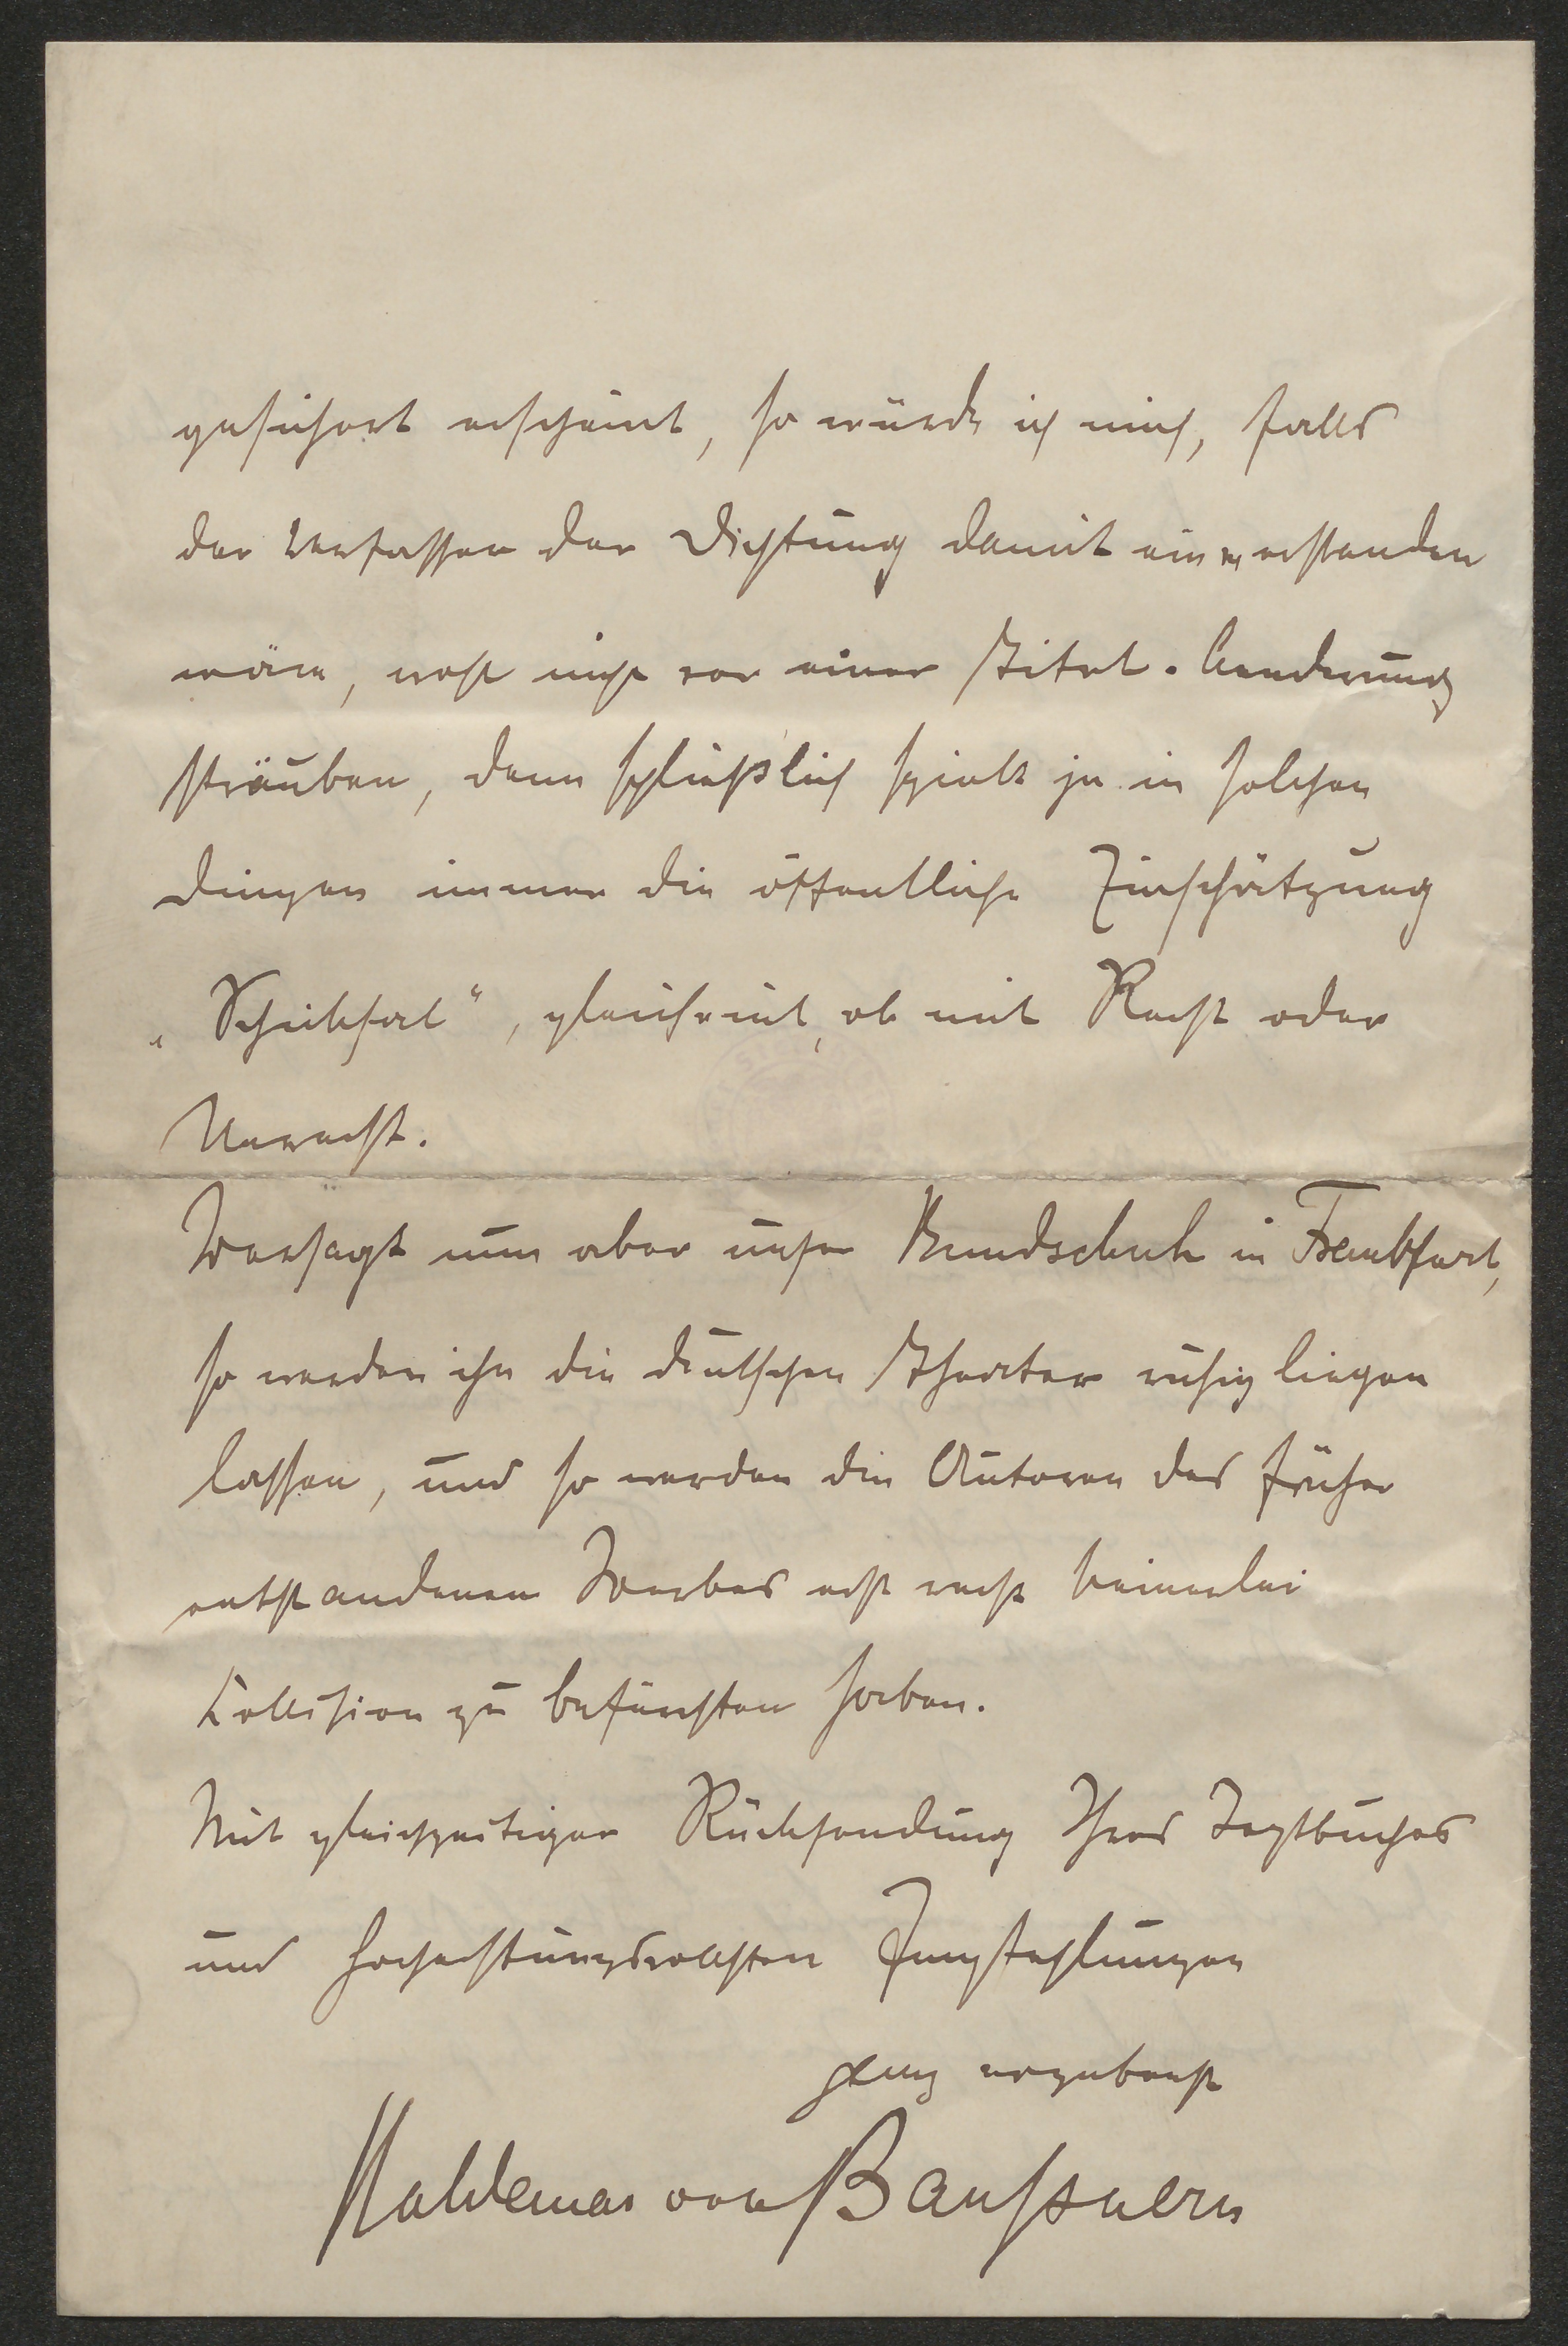 gesichert erscheint, so würde ich mich, falls
der Verfasser der Dichtung damit einverstanden
wäre, wohl nicht vor einer Titel-Aenderung
sträuben, denn schließlich spielt ja in solchen
Dingen immer die öffentliche Einschätzung
„Schicksal“, gleichviel, ob mit Recht oder
Unrecht.
Versagt nun aber unser Bundschuh in Frankfurt,
so werden ihn die deutschen Theater ruhig liegen
lassen, und so werden die Autoren des früher
entstandenen Werkes erst recht keinerlei
Collision zu befürchten haben.
Mit gleichzeitiger Rücksendung Ihres Textbuches
und hochachtungsvollsten Empfehlungen
ganz ergebenst
Waldemar von Baußnern